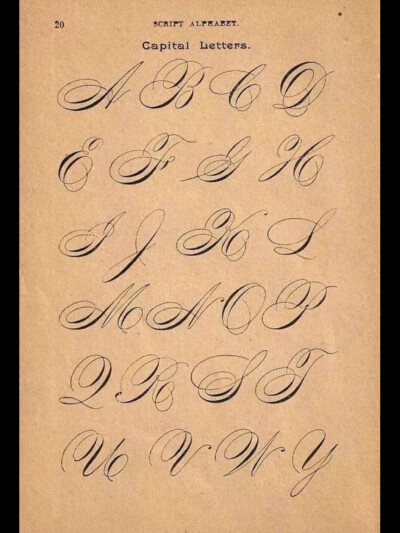 20 SCRIPT ALPHABET.
Capital Letters.
A B C D
E F G H
I J K L
M N O P
Q R S T
U V W Y